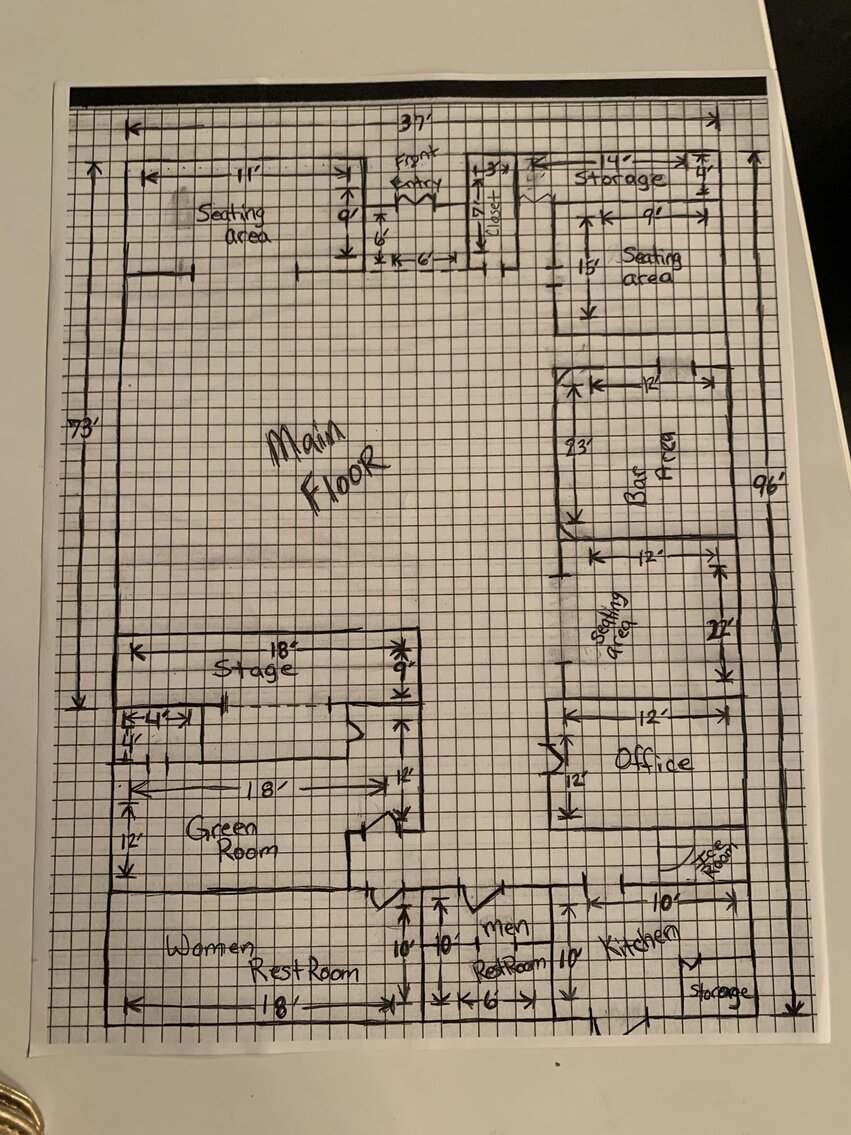 37'
11'
Front
Entry
3'
14'
Storage
4'
Seating
area
9'
6'
6'
7'
Closet
9'
15'
Seating
area
73'
Main
Floor
12'
23'
Bar
Area
96'
12'
Seating
area
22'
18'
Stage
9'
4'
4'
12'
12'
Office
12'
18'
12'
Green
Room
Ice
Room
Women
RestRoom
10'
18'
10'
men
RestRoom
6'
10'
10'
Kitchen
Storage